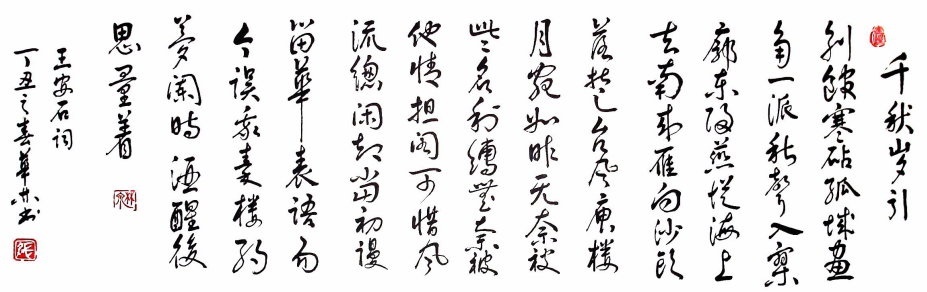 千秋岁引
别馆寒砧孤城画
角一派秋声入寥
廓东归燕從海上
去南来雁向沙头
落楚台风庾楼
月宛如昨无奈被
些名利縛無奈被
他情担阁可惜风
流總闲却当初謾
留華表語而
今误我秦楼约
梦阑时酒醒後
思量着
王安石词
丁丑之春華书